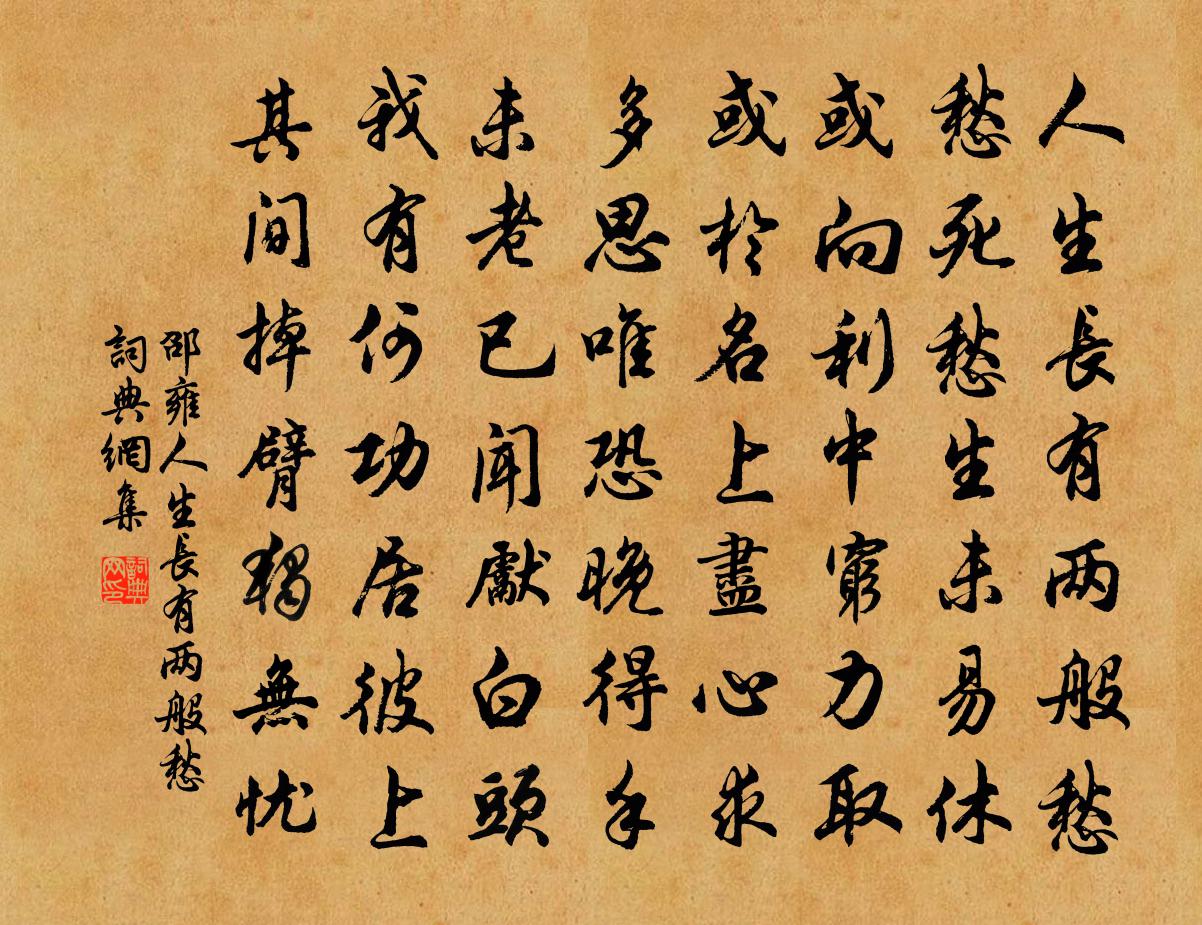 人生長有两般愁
愁死愁生未易休
或向利中窮力取
或於名上盡心求
多思唯恐晚得手
未老已聞獻白頭
我有何功居彼上
其間掉臂獨無忧
邵雍人生長有两般愁
詞典網集
詞典网印